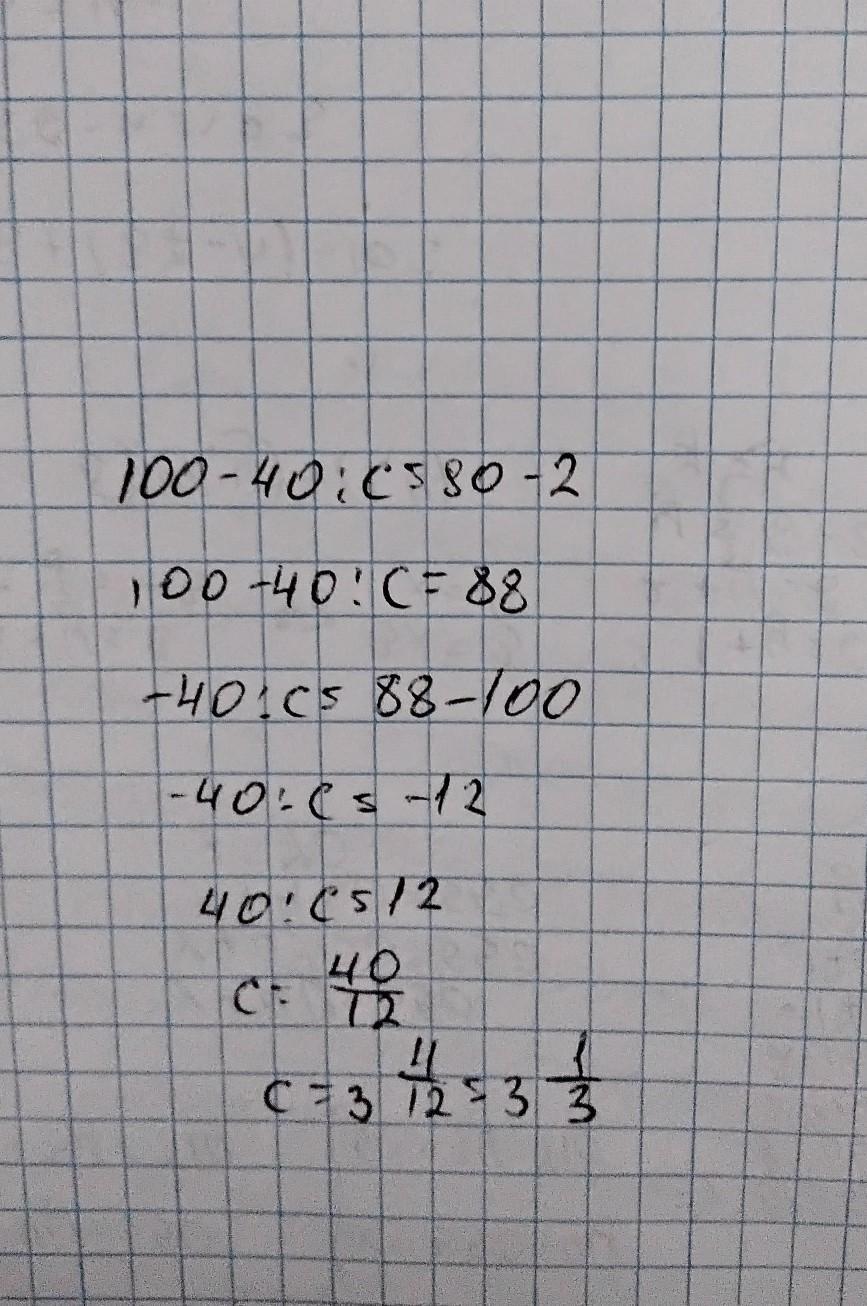 100-40:c=90-2
100-40:c=88
-40:c=88-100
-40:c=-12
40:c=12
c=40/12
c=3 4/12=3 1/3